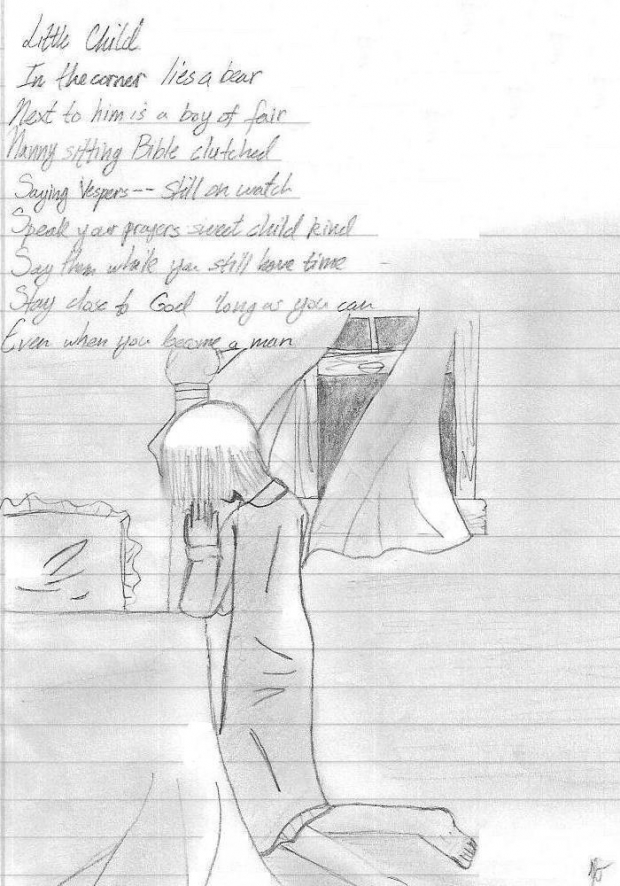 Little Child
In the corner lies a bear
Next to him is a boy of fair
Nanny sitting Bible clutched
Saying Vespers-- still on watch
Speak your prayers sweet child kind
Say them while you still have time
Stay close to God 'long as you can
Even when you become a man